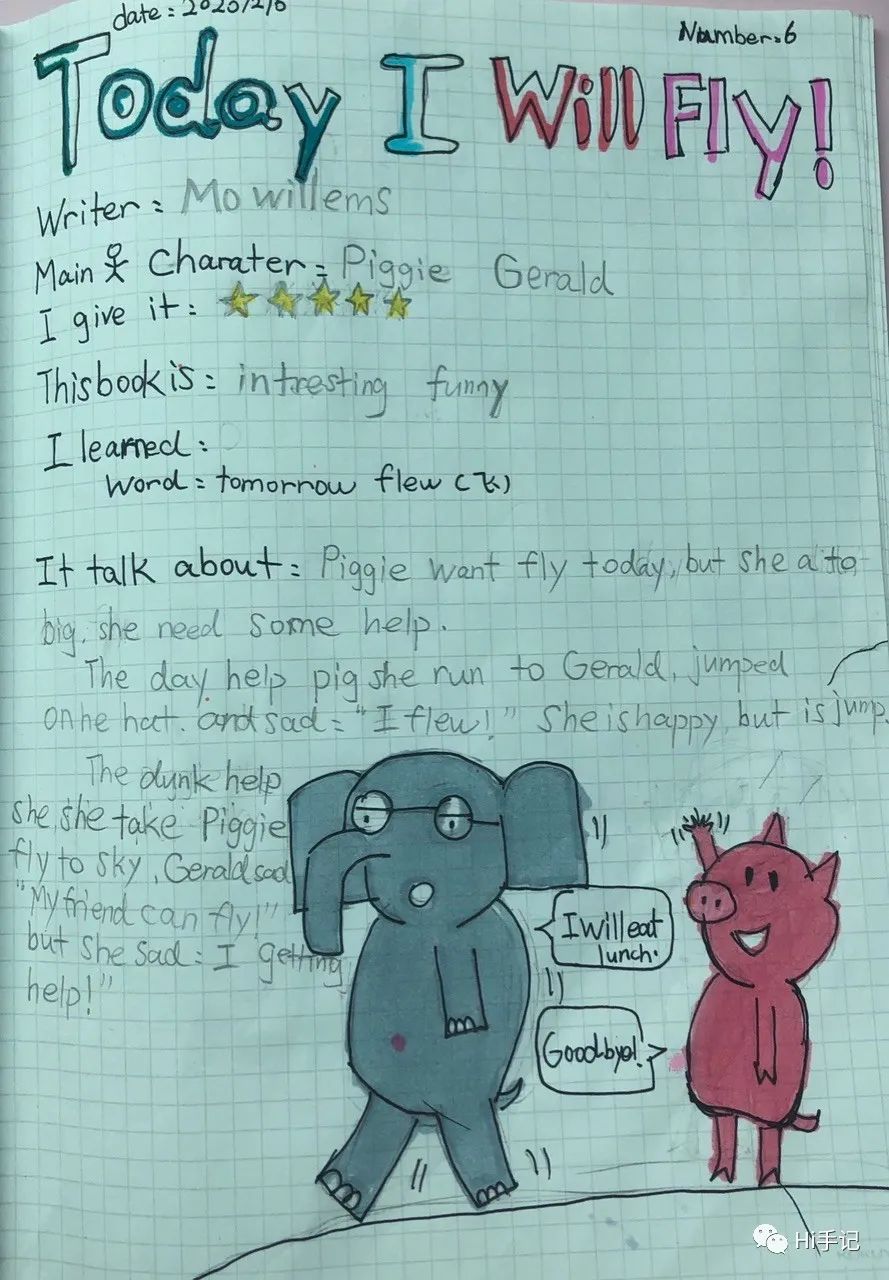 date: 2020/2/6
Number.6
Today I Will Fly!
Writer: Mo willems
Main Charater: Piggie Gerald
I give it:
This book is: intresting funny
I learned:
word: tomorrow flew (飞)
It talk about: Piggie want fly today, but she a to
big, she need some help.
The day, help pig she run to Gerald, jumped
on he hat. and sad: "I flew!" She is happy, but is jump.
The help
she, she take Piggie
fly to sky, Gerald sad
"My friend can fly!"
but she sad: I getting
help!"
I will eat
lunch.
Goodbye!
Hi手记